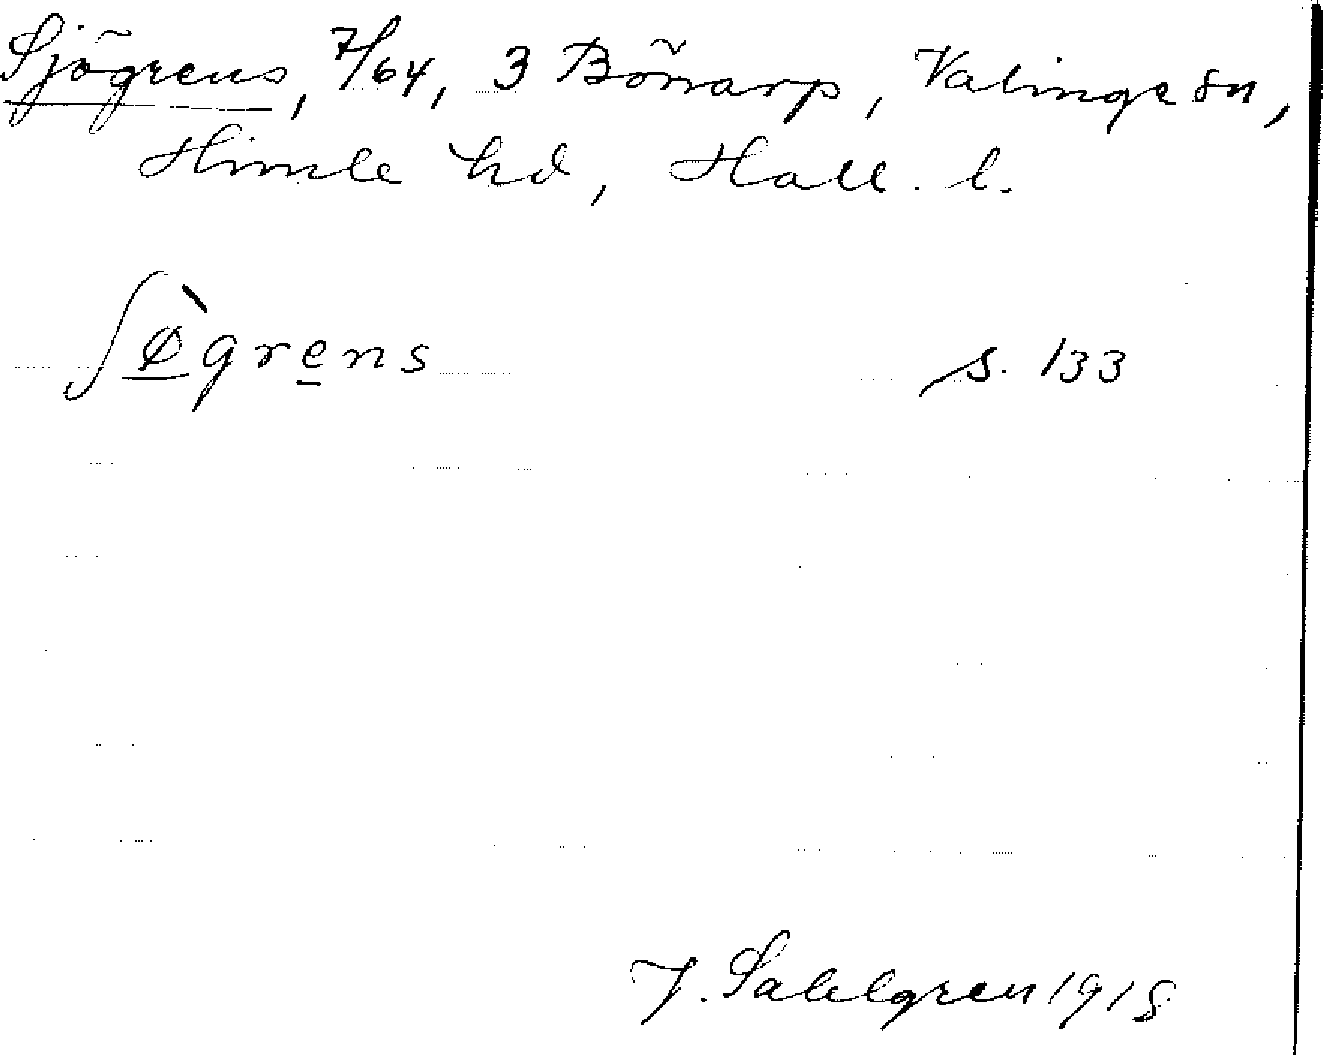 Sjögrens, 7/64, 3 Bönarp, Valinge sn,
Himle hd, Hall. l.
ʃø̀grens s. 133
J. Sahlgren 1918